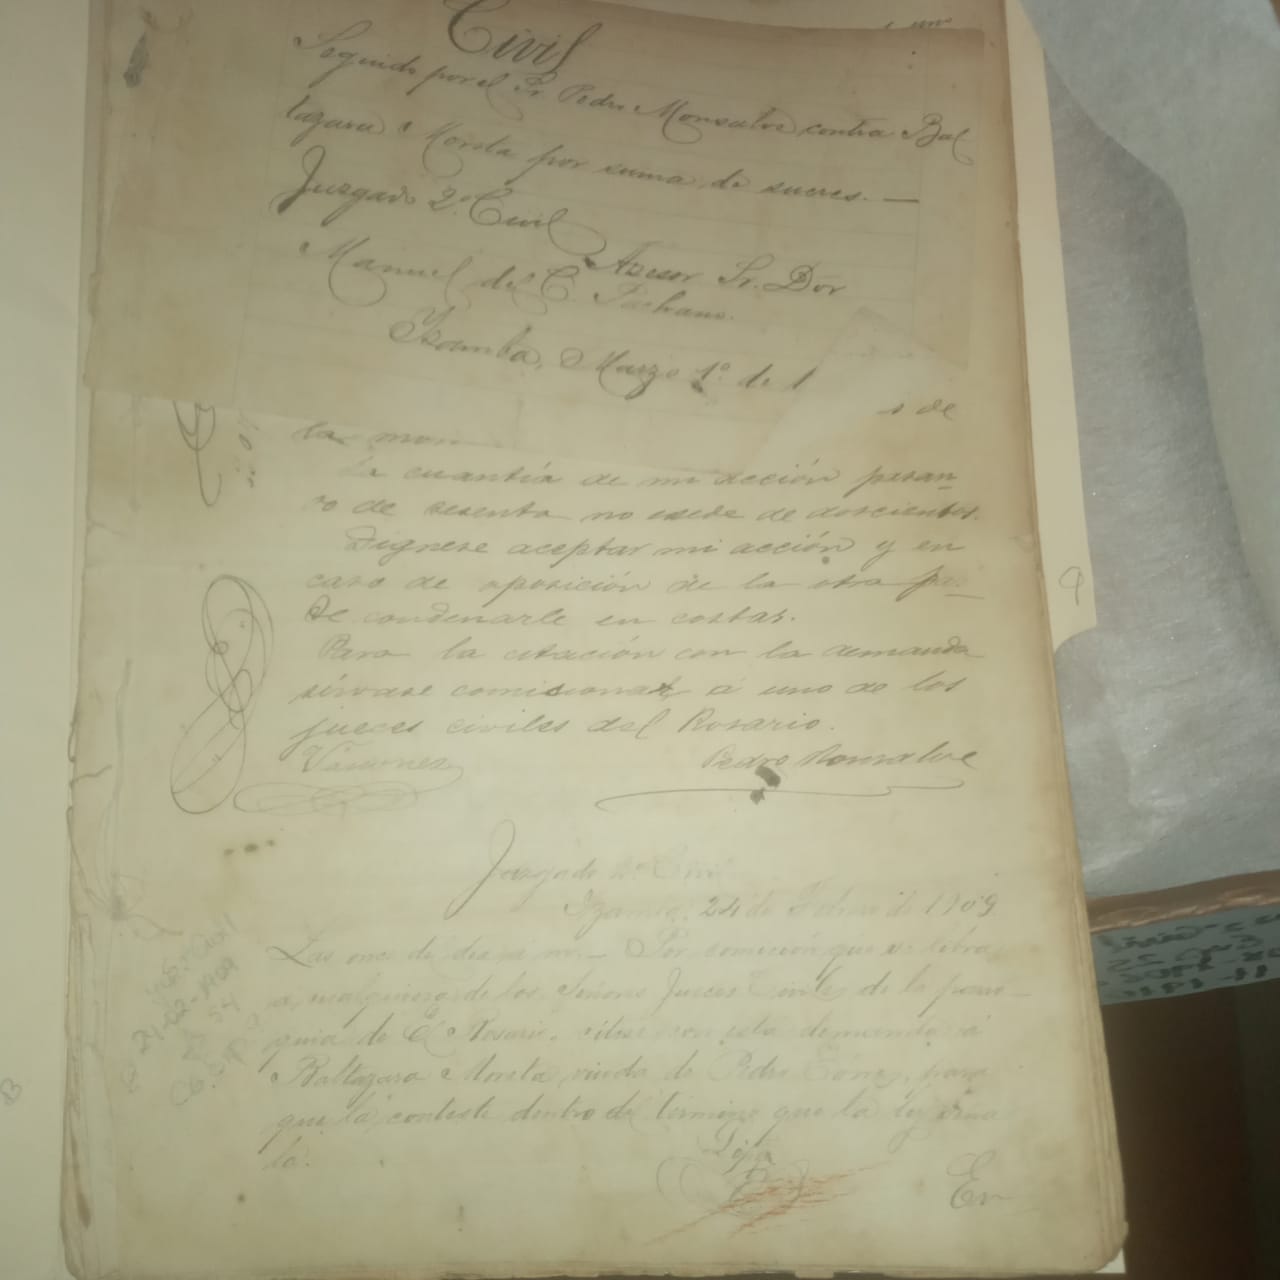 Civil
Seguido por el Sr. Pedro Monsalve contra Bal
tazara Moreta por suma de sucres. —
Juzgado 2º Civil
Asesor Sr. Dor
Manuel del C. Pachano.
Izamba, Marzo 1º de 1
s de
la mon
la cuantía de mi acción pasan
ro de sesenta no exede de doscientos.
Dignese aceptar mi acción y en
caso de oposición de la otra pa-
te condenarle en costas.
Para la citación con la demanda
sirvase comisionar á uno de los
jueces civiles del Rosario.
Pedro Monsalve
Juzgado 2º Civil
Izamba, 24 de Febro de 1909
Las once del dia a m. — Por comisión que se libra
a cualquiera de los Señores Jueces Civiles de la parro-
quia de El Rosario, citese con esta demanda á
Baltazara Moreta, viuda de Pedro, para
que la conteste dentro del término que la ley seña
la.
En
24-02-1909